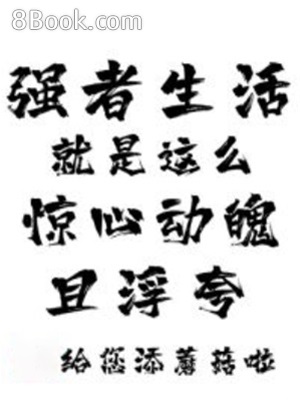 8Book.com
强者生活
就是这么
惊心动魄
且浮夸
给您添蘑菇啦